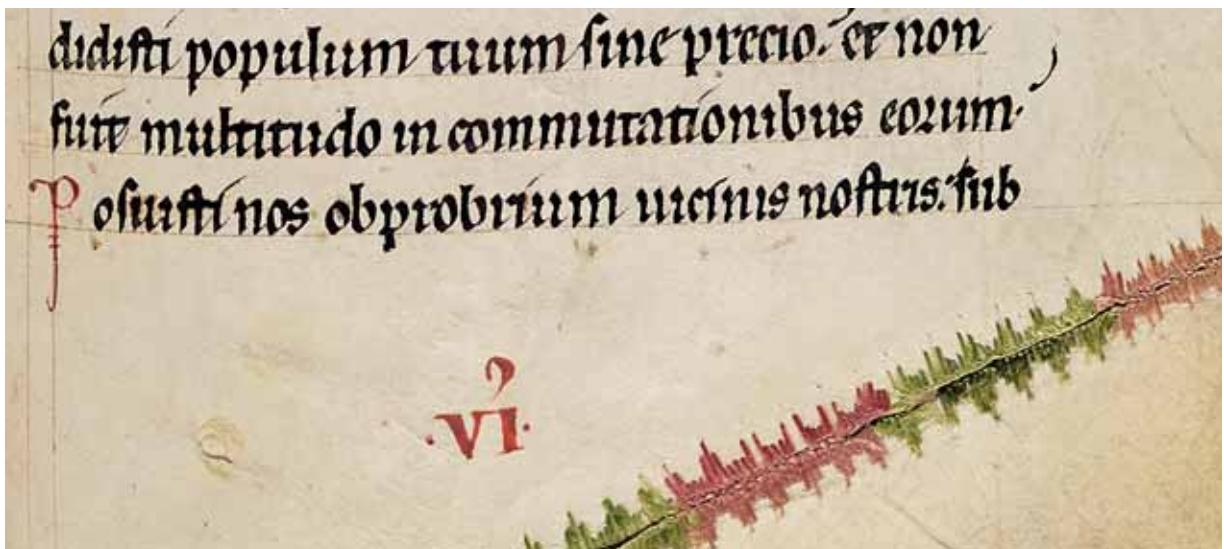 didisti populum tuum sine precio. et non
fuit multitudo in commutationibus eorum.
Posuisti nos obprobrium uicinis nostris. sub
.VIꝰ.